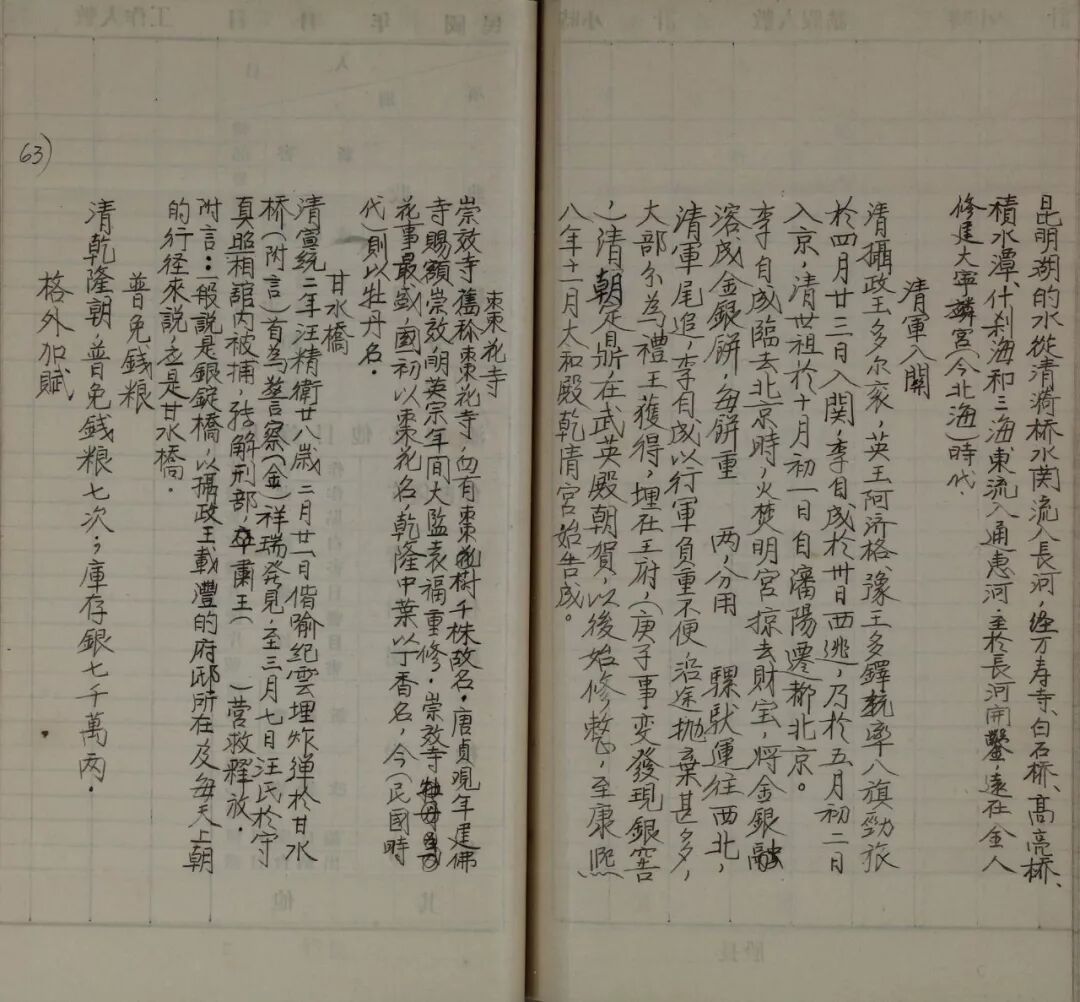 昆明湖的水從清漪桥水関流入長河，经万寿寺、白石桥、高亮桥、
積水潭、什刹海和三海東流入通惠河，至於長河開鑿，遠在金人
修建大寧宮（今北海）時代．
清軍入關
清攝政王多尔衮，英王阿济格、豫王多鐸統率八旗勁旅
於四月廿三日入関，李自成於卅日西逃，乃於五月初二日
入京，清世祖於十月初一日自瀋陽遷都北京。
李自成臨去北京時，火焚明宮掠去財宝，將金銀融
溶成金銀餅，每餅重　两，分用　騾馱運往西北，
清軍尾追，李自成以行軍負重不便，沿途拋棄甚多，
大部尔為禮王獲得，埋在王府，（庚子事变發現銀窖
），清朝定鼎，在武英殿朝賀，以後始修整，至康熙
八年十一月太和殿乾清宮始告成。
棗花寺
崇效寺舊称棗花寺，內有棗花樹千株故名．唐貞观年建佛
寺賜額崇效，明英宗年间大監袁福重修．崇效寺牡丹
花事最剩，國初以棗花名，乾隆中葉以丁香名，今（民國時
代）則以牡丹名．
甘水橋
清宣統二年汪精衛廿八歲二月廿一日偕喻紀雲埋炸弹於甘水
桥（附言）首為警察（金）祥瑞発見，至三月七日汪氏於守
真照相館内被捕，转解刑部，肅王（　）营救釋放．
附言：一般説是銀錠橋，以攝政王載灃的府邸所在及每天上朝
的行径來說，应是甘水橋．
普免錢粮
清乾隆朝，普免錢粮七次；庫存銀七千萬两．
格外加賦
63）